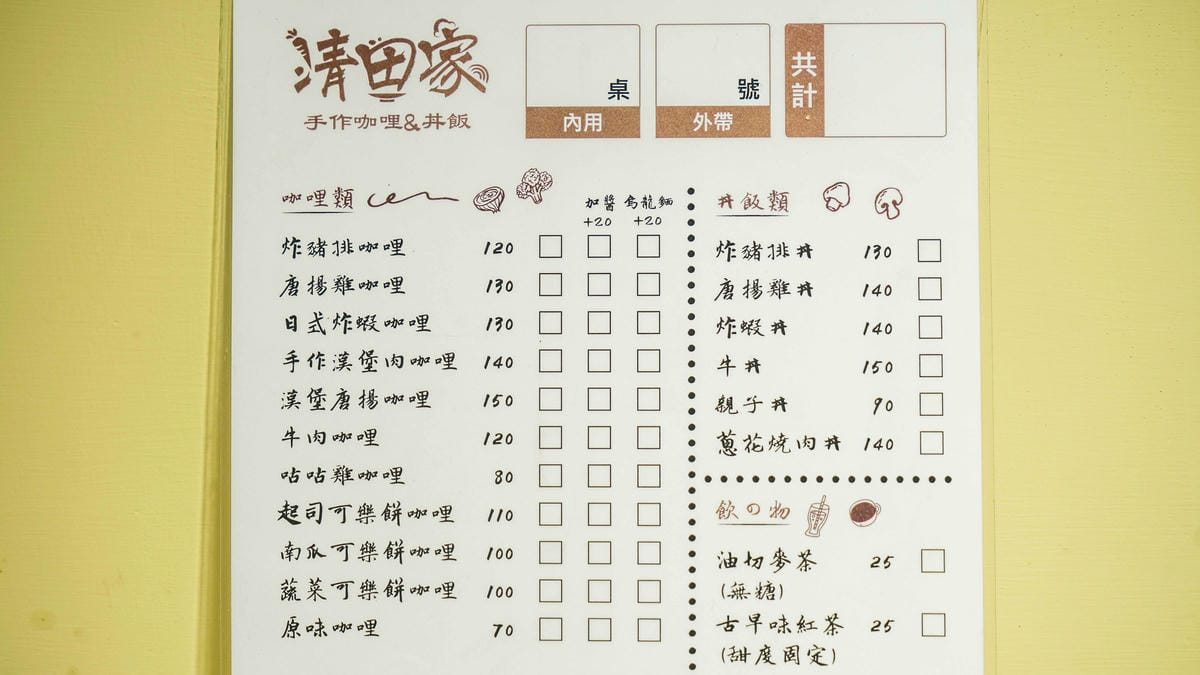 清田家
手作咖哩&丼飯
桌
內用
號
外帶
共計
咖哩類
加醬 烏龍麵
+20 +20
炸豬排咖哩 120
唐揚雞咖哩 130
日式炸蝦咖哩 130
手作漢堡肉咖哩 140
漢堡唐揚咖哩 150
牛肉咖哩 120
咕咕雞咖哩 80
起司可樂餅咖哩 110
南瓜可樂餅咖哩 100
蔬菜可樂餅咖哩 100
原味咖哩 70
丼飯類
炸豬排丼 130
唐揚雞丼 140
炸蝦丼 140
牛丼 150
親子丼 90
蔥花燒肉丼 140
飲の物
油切麥茶 25
(無糖)
古早味紅茶 25
(甜度固定)